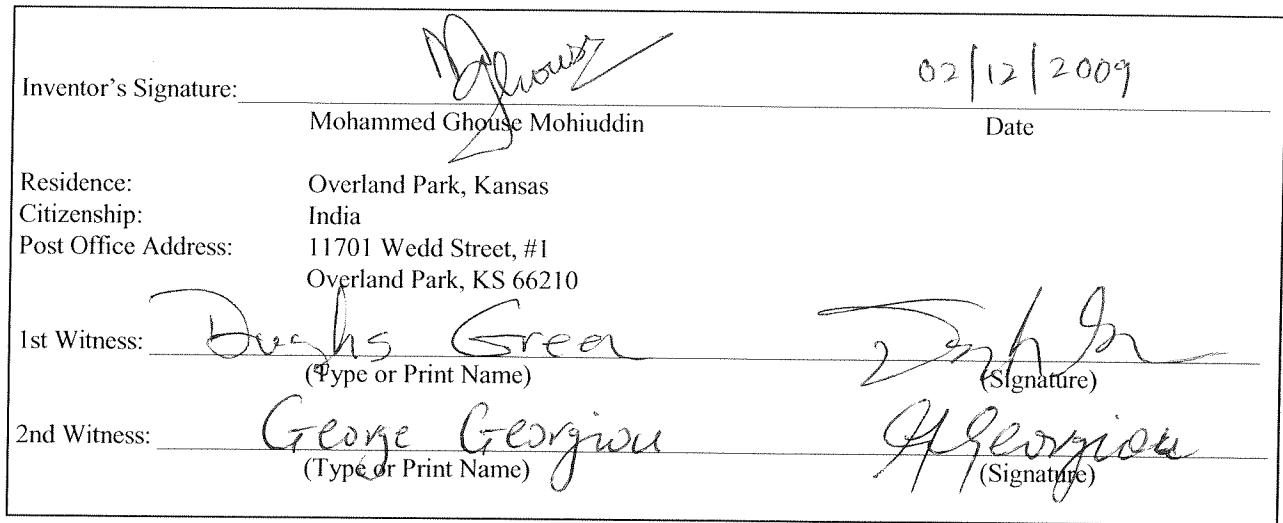 Inventor's Signature: MGhouse 02/12/2009
Mohammed Ghouse Mohiuddin Date
Residence: Overland Park, Kansas
Citizenship: India
Post Office Address: 11701 Wedd Street, #1
Overland Park, KS 66210
1st Witness: Douglas Green
(Type or Print Name) (Signature)
2nd Witness: George Georgiou GGeorgiou
(Type or Print Name) (Signature)